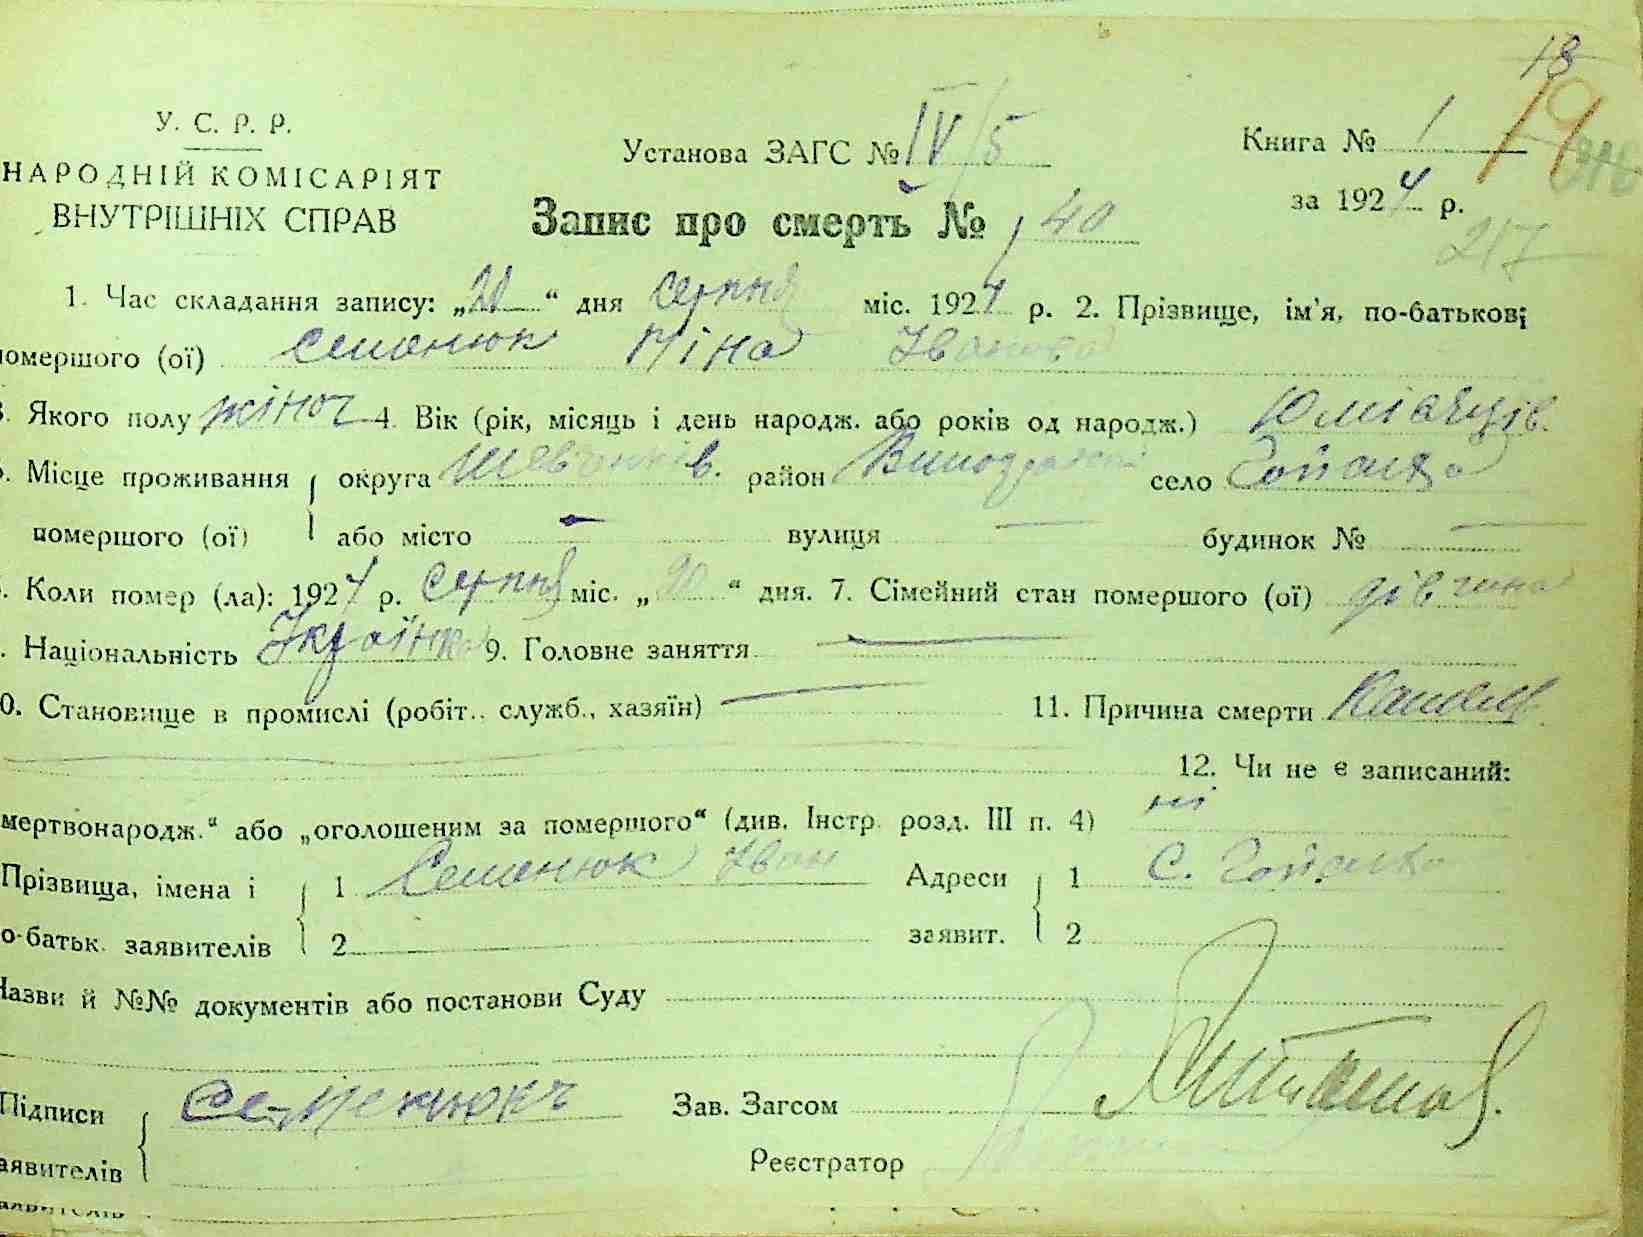 13
У. С. Р. Р.
Установа ЗАГС № IV/5
Книга № 1
19
НАРОДНІЙ КОМІСАРІЯТ
за 1924 р.
ВНУТРІШНІХ СПРАВ
Запис про смерть № 40
217
1. Час складання запису: „20“ дня серпня міс. 1924 р. 2. Прізвище, ім'я, по-батькові
помершого (ої) Семенюк Ніна Іванова
3. Якого полу жіноч 4. Вік (рік, місяць і день народж. або років од народж.) 10 місяців.
. Місце проживання округа Шевченків. район село
помершого (ої) або місто — вулиця — будинок № —
. Коли помер (ла): 1924 р. серпня міс. „20“ дня. 7. Сімейний стан помершого (ої) дівчина
. Національність Українка 9. Головне заняття —
0. Становище в промислі (робіт., служб., хазяїн) — 11. Причина смерти
12. Чи не є записаний:
мертвонародж.“ або „оголошеним за помершого“ (див. Інстр. розд. III п. 4) ні
Прізвища, імена і 1 Семенюк Іван Адреси 1 С.
о-батьк. заявителів 2 заявит. 2
Назви й №№ документів або постанови Суду
Підписи Семенюкъ Зав. Загсом
аявителів Реєстратор